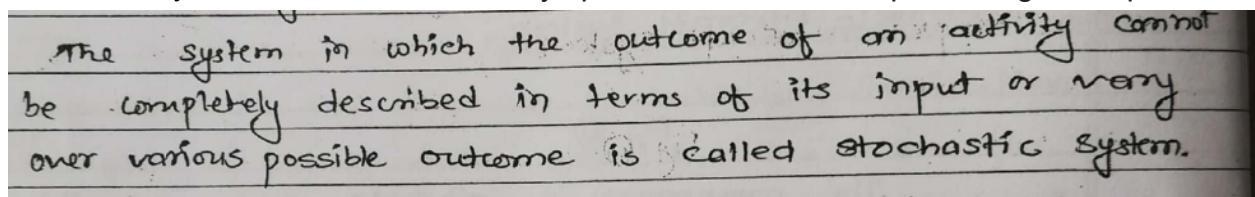 The system in which the outcome of an activity cannot
be completely described in terms of its input or very
over various possible outcome is called stochastic system.